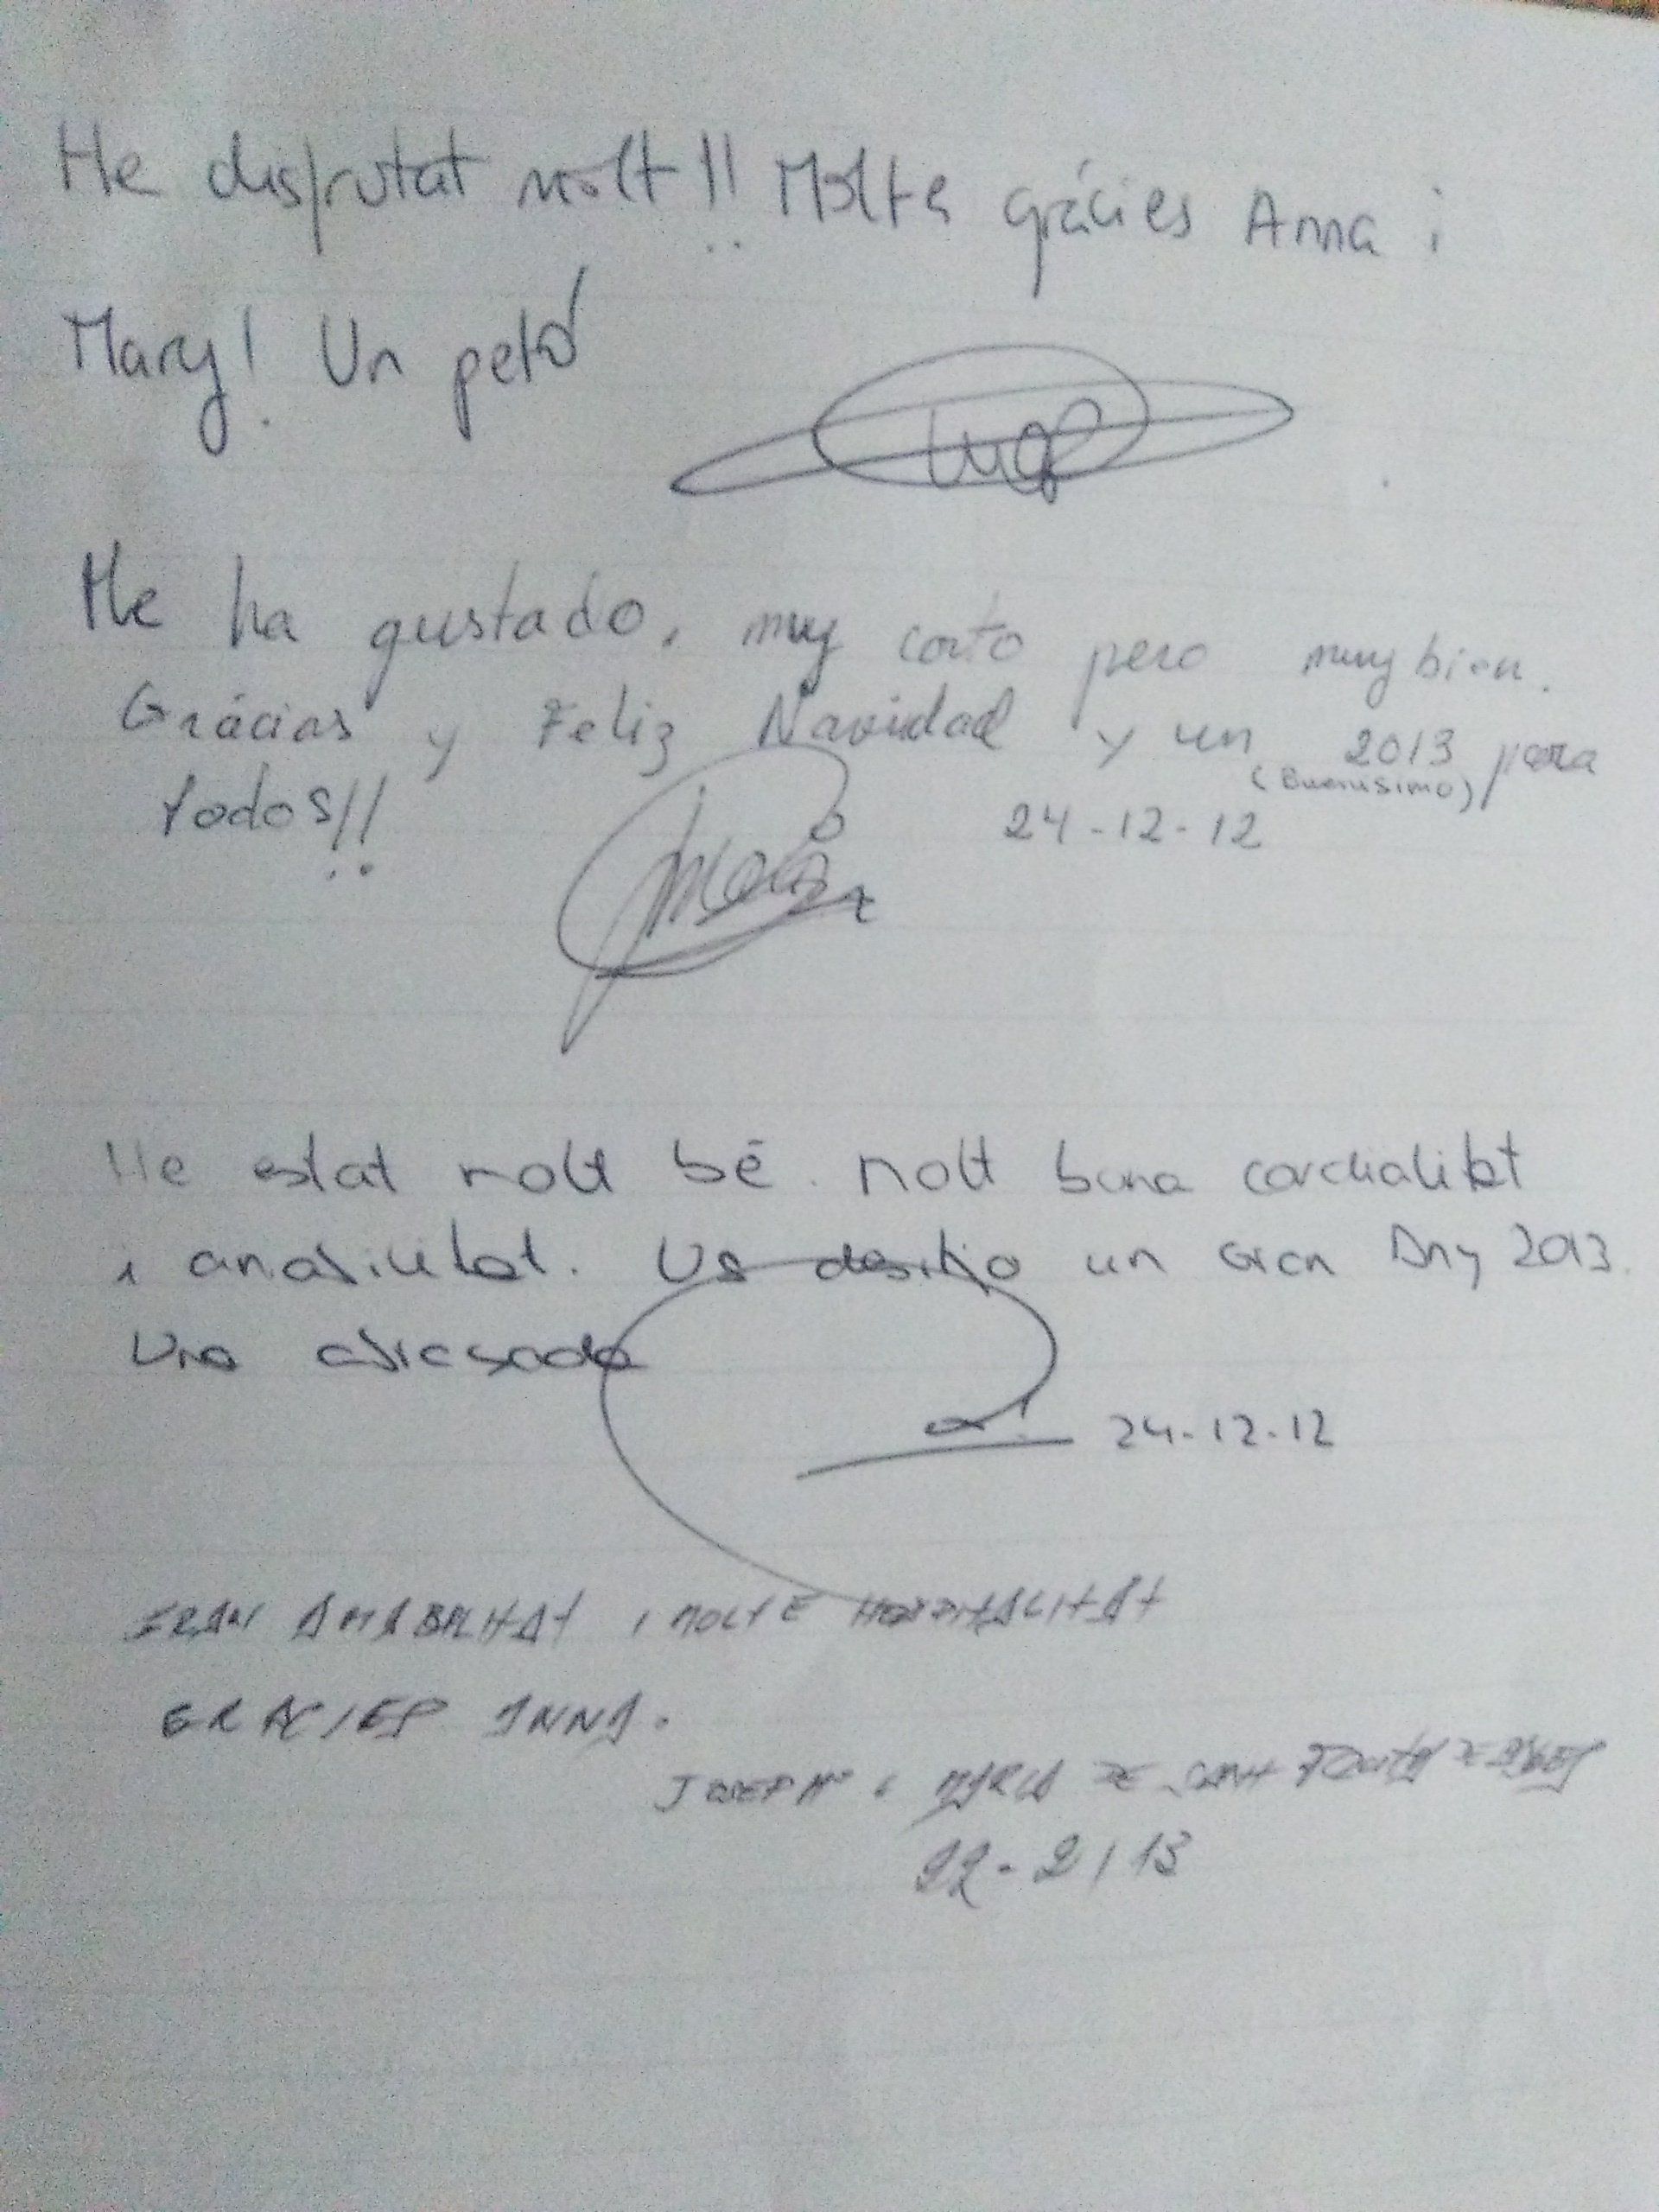 He disfrutat molt!! Moltes gràcies Anna i
Mary! Un petó
Me ha gustado, muy corto pero muy bien.
Grácias y Feliz Navidad y un 2013 para
(Buenísimo)
todos!!
24-12-12
He estat molt bé. Molt bona cordialitat
i amabilitat. Us desitjo un Gran Any 2013.
Una abraçada
24-12-12
GRAN AMABILITAT i MOLTE HOSPITALITAT
GRACIES ANNA.
JOSEP Mª i MARIA DE SANT
22-2/13